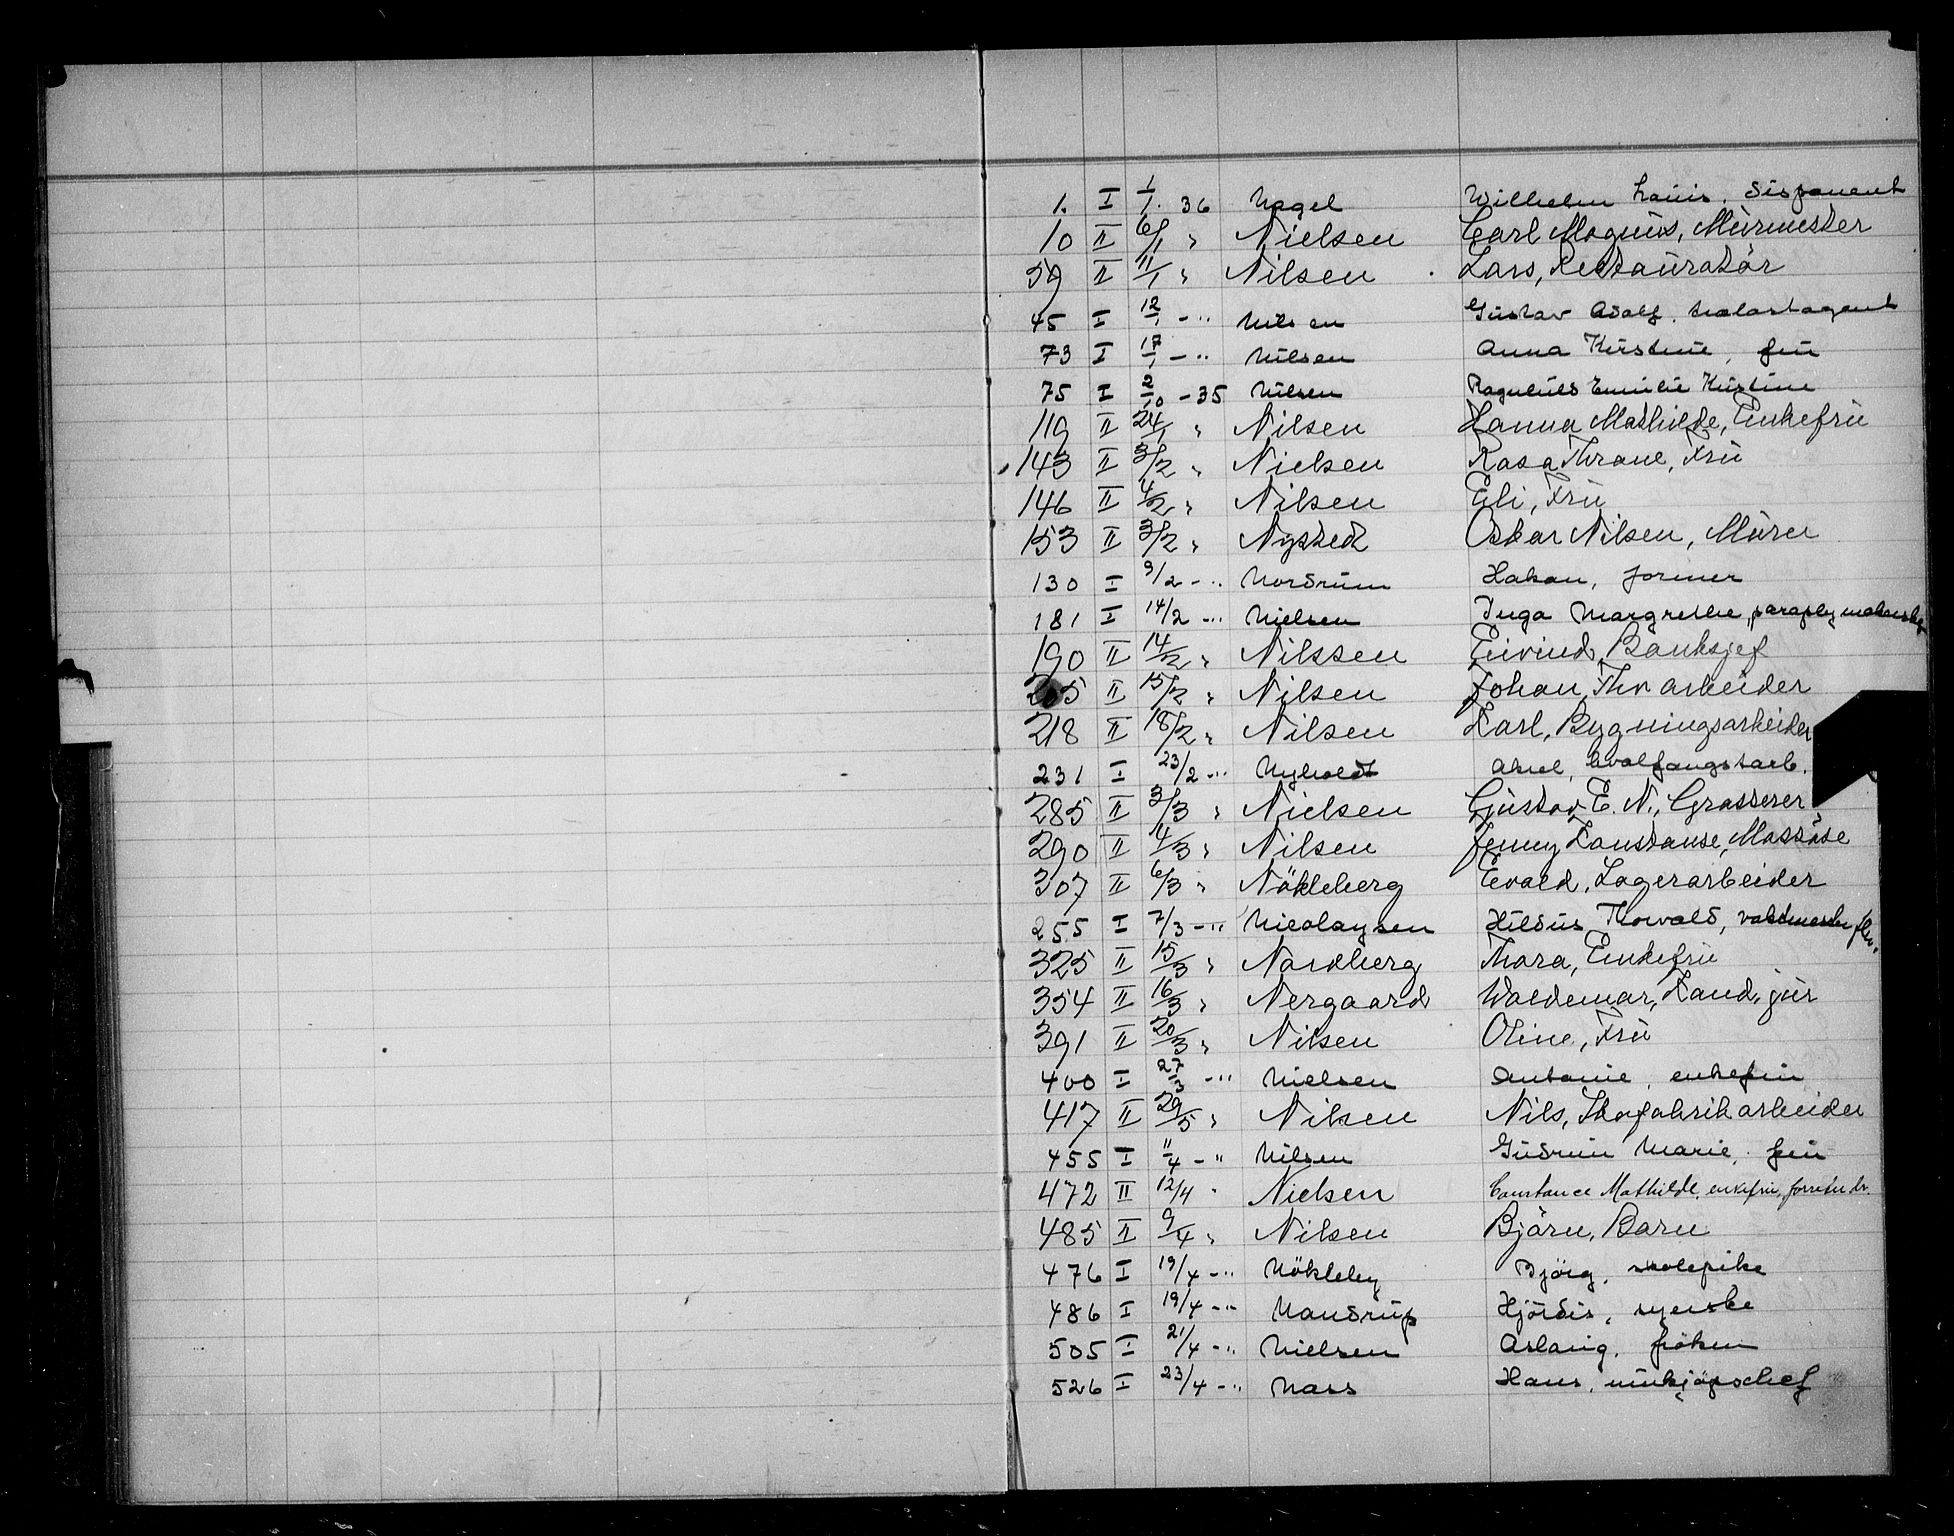 1. I 1/1. 36 Nagel Wilhelm Louis, disponent
10 II 6/1 " Nielsen Carl Magnus, Murmester
39 II 11/1 " Nilsen Lars, Restauratør
45 I 12/1 - " Nilsen Gustav Adolf,
73 I 17/1 - " Nilsen Anna Kirstine, fru
75 I 2/10 - 35 Nilsen Ragnhild Emilie Kristine
119 II 24/1 " Nilsen Hanna Mathilde, Enkefru
143 II 3/2 " Nielsen Rosa Thrane, Fru
146 II 4/2 " Nilsen Eli, Fru
153 II 3/2 " Nysted Oskar Nilsen, Murer
130 I 9/2 - " Nordrum Hakon, former
181 I 14/2 - " Nielsen Inga Margrethe,
190 II 14/2 " Nilssen Eivind, Banksjef
205 II 15/2 " Nilsen Johan, Thv arbeider
218 II 18/2 " Nilsen Karl, Bygningsarbeider
231 I 23/2 - " Nyholdt Aksel, hvalfangstarb.
285 II 3/3 " Nielsen Gustav E. N., Grosserer
290 II 4/3 " Nilsen Jenny Konstanse, Massøse
307 II 6/3 " Nökleberg Evald, Lagerarbeider
255 I 7/3 - " Nicolaysen Hildus Thorvald, vaktmester
325 II 15/3 " Nordberg Thora, Enkefru
354 II 16/3 " Nergaard Waldemar, Kand. jur
391 II 20/3 " Nilsen Oline, Fru
400 I 27/3 - " Nielsen Antonie, enkefru
417 II 29/5 " Nilsen Nils, Skofabrikarbeider
455 I 11/4 - " Nilsen Gudrun Marie, fru
472 II 12/4 " Nielsen Constance Mathilde, enkefru,
485 II 9/4 " Nilsen Björn, Barn
476 I 19/4 - " Nökleby Bjørg, skolepike
486 I 19/4 - " Nandrup Hjørdis, syerske
505 I 21/4 - " Nielsen Aslaug, frøken
526 I 23/4 - " Nass Hans, innkjøpschef